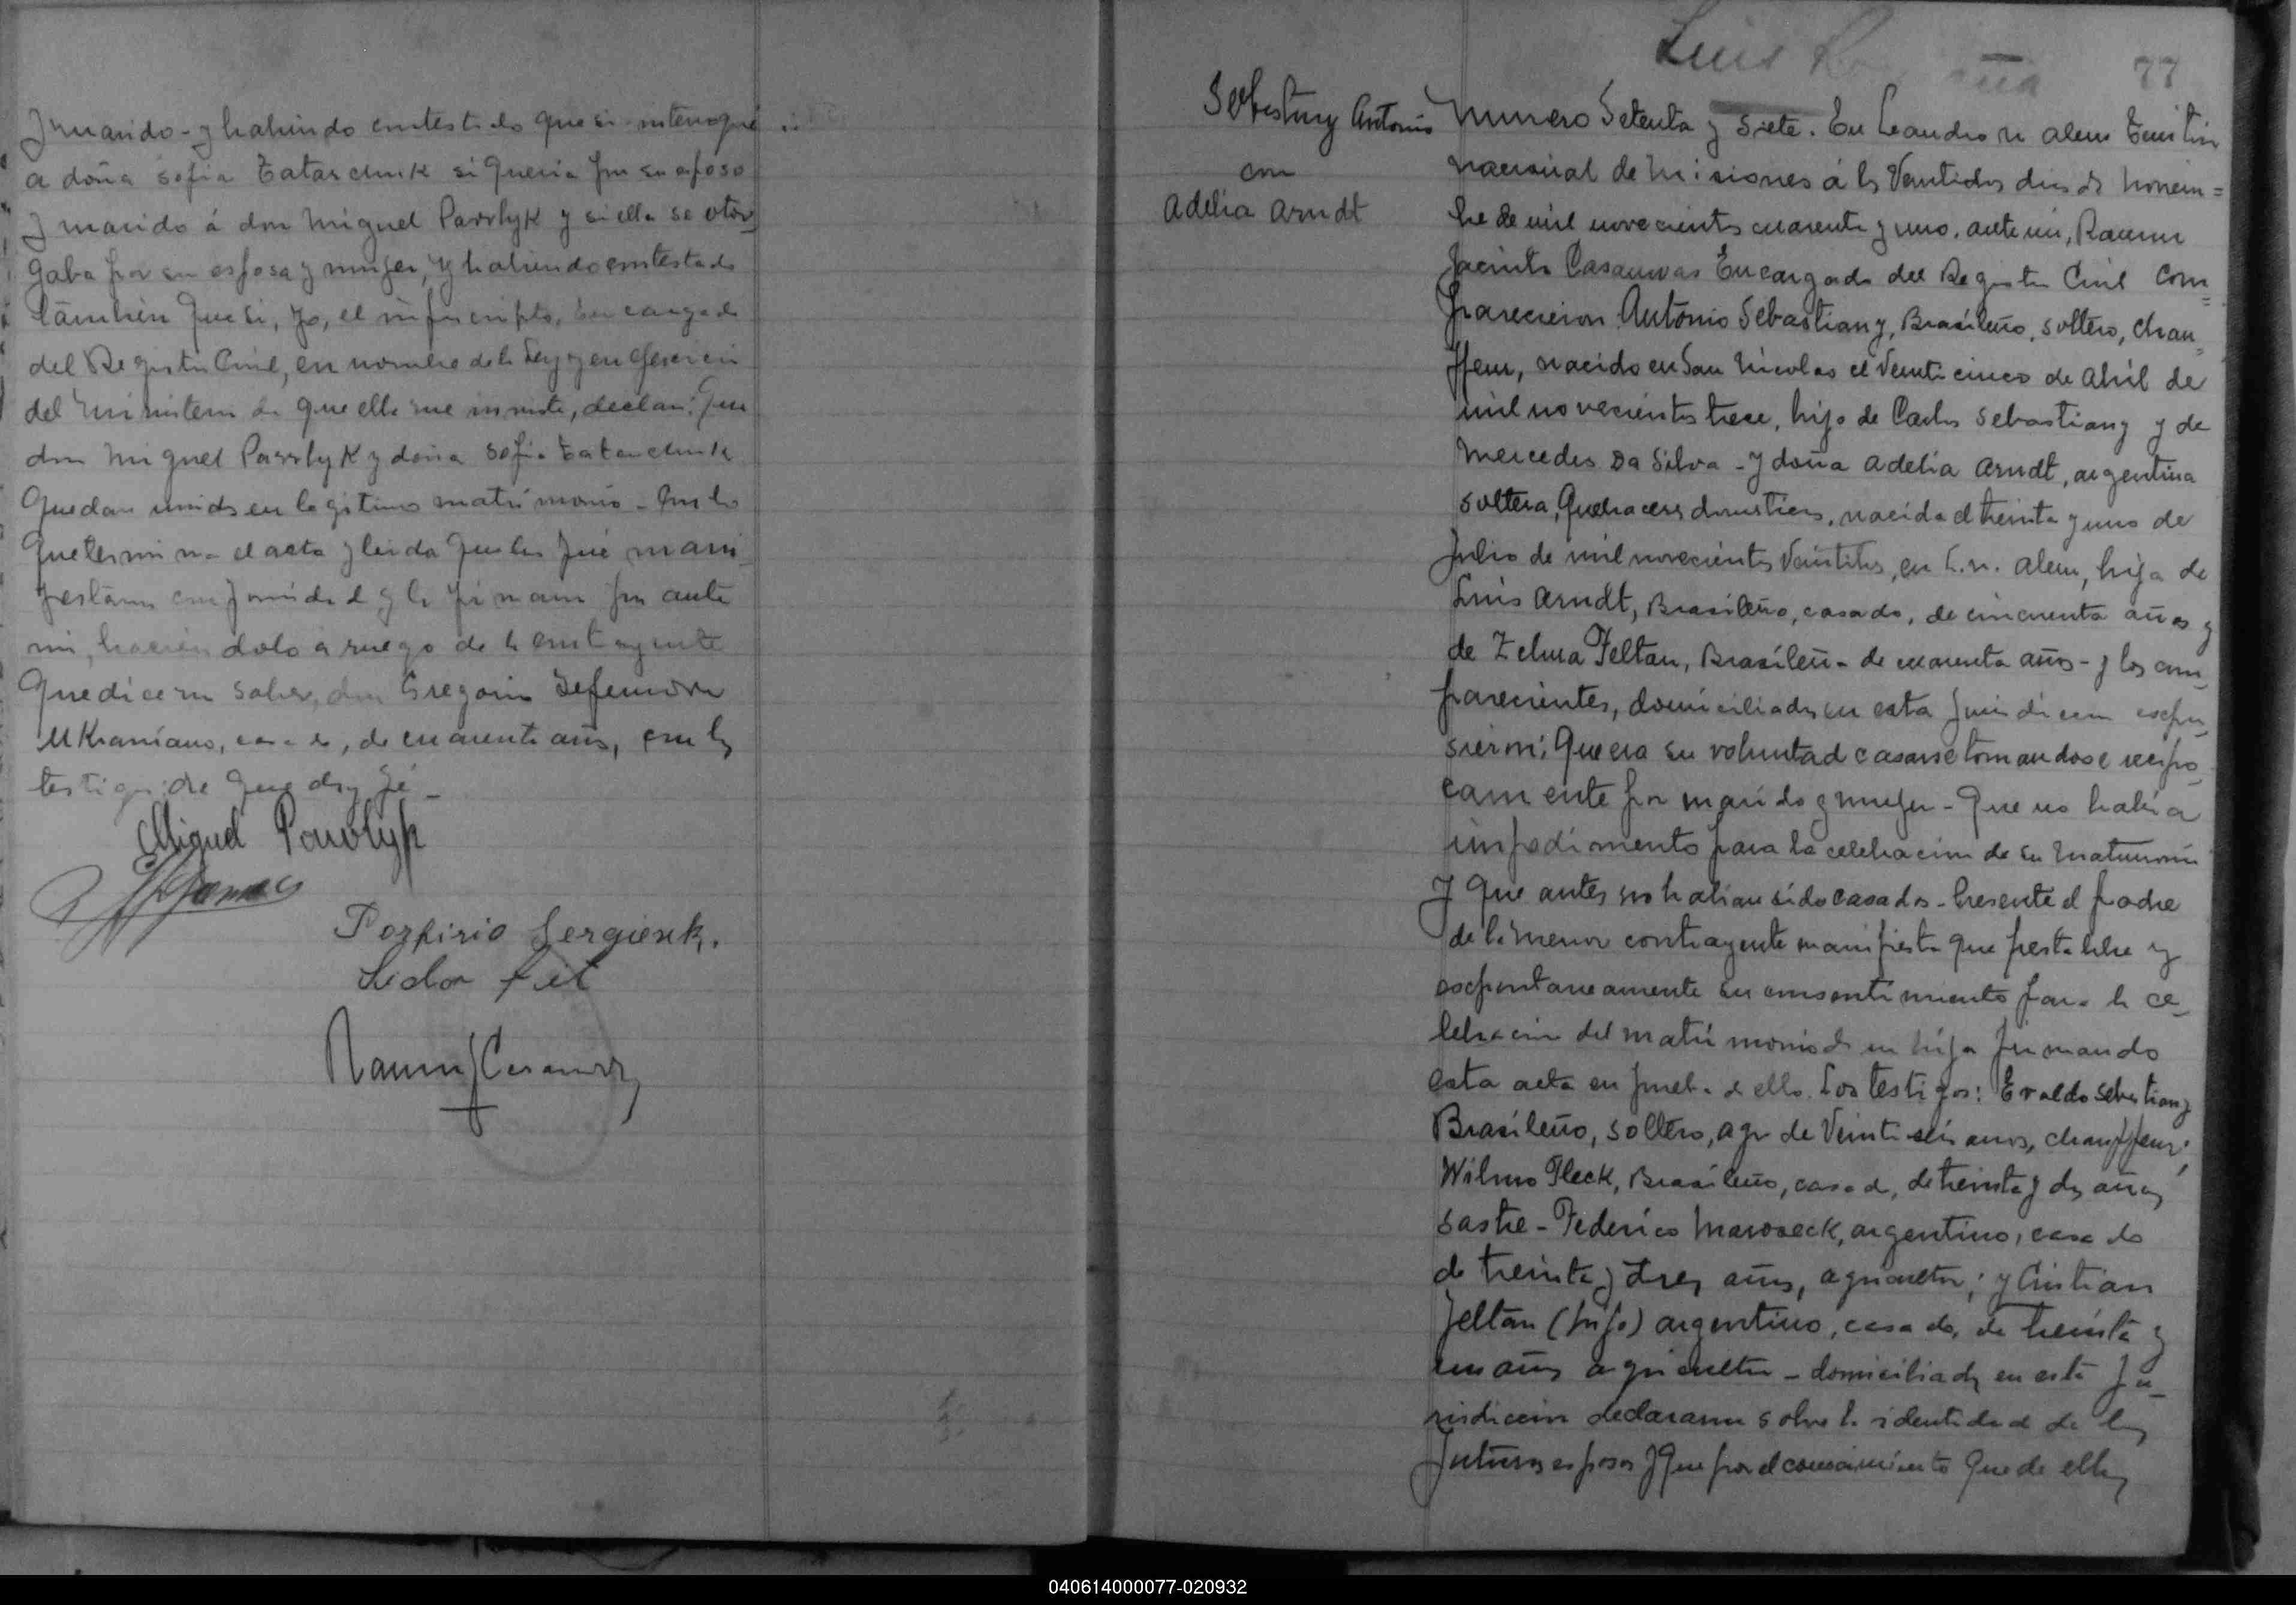 y marido - y habiendo contestado que si interrogué
a doña Sofia Tatarchuk si queria por su esposo
y marido á don Miguel Pawlyk y si ella se otor
gaba por su esposa y mujer, y habiendo contestado
tambien que si, yo, el infrascripto, Encargado
del Registro Civil, en nombre de la Ley y en ejercicio
del ministerio de que ella me inviste, declaro: Que
don Miguel Pawlyk y doña Sofia Tatarchuk
quedan unidos en legitimo matrimonio - Con lo
que termina el acta y leida que les fué mani
festaron conformidad y la firman por ante
mi, haciendolo a ruego de la contrayente
que dice no saber, don Gregorio
Ukraniano, casado, de cuarenta años, con los
testigos: de que doy fé -
Miguel Pawlyk
Porfirio Sergienk.
Sidor
Ramon J Casanovas
77
Sebastiany Antonio
con
Adelia Arndt
Numero Setenta y Siete. En Leandro N Alem Territorio
nacional de Misiones á los Veintidos dias de Noviem=
bre de mil novecientos cuarenta y uno, ante mi, Ramon
Jacinto Casanovas Encargado del Registro Civil Com=
parecieron Antonio Sebastiany, Brasileño, soltero, chau
ffeur, nacido en San Nicolas el Veinticinco de Abril de
mil novecientos trece, hijo de Carlos Sebastiany y de
Mercedes Da Silva - y doña Adelia Arndt, argentina
soltera, Quehaceres domesticos, nacida el treinta y uno de
Julio de mil novecientos, en L.N. Alem, hija de
Luis Arndt, Brasileño, casado, de cincuenta años y
de Zelma Feltan, Brasileña de cuarenta años - y los com
parecientes, domiciliados en esta Jurisdiccion expu
sieron: Que era su voluntad casarse tomandose recipro
camente por marido y mujer - Que no habia
impedimento para la celebracion de su Matrimonio
y que antes no habian sido casados - Presente el padre
de la menor contrayente manifiesta que presta libre y
expontaneamente su consentimiento para la ce_
lebracion del matrimonio de su hija firmando
esta acta en prueba de ello. Los testigos: Evaldo Sebastiany
Brasileño, soltero, de Veinti seis anos, chauffeur;
Wilmo Fleck, Brasileño, casado, de treinta y dos años,
sastre - Federico Maroseck, argentino, casado
de treinta y tres años, agricultor; y Cristian
Feltan (hijo) argentino, casado, de treinta y
un años agricultor - domiciliados en esta Ju_
risdiccion declararon sobre la identidad de los
futuros esposos y que por el conocimiento que de ellos
040614000077-020932